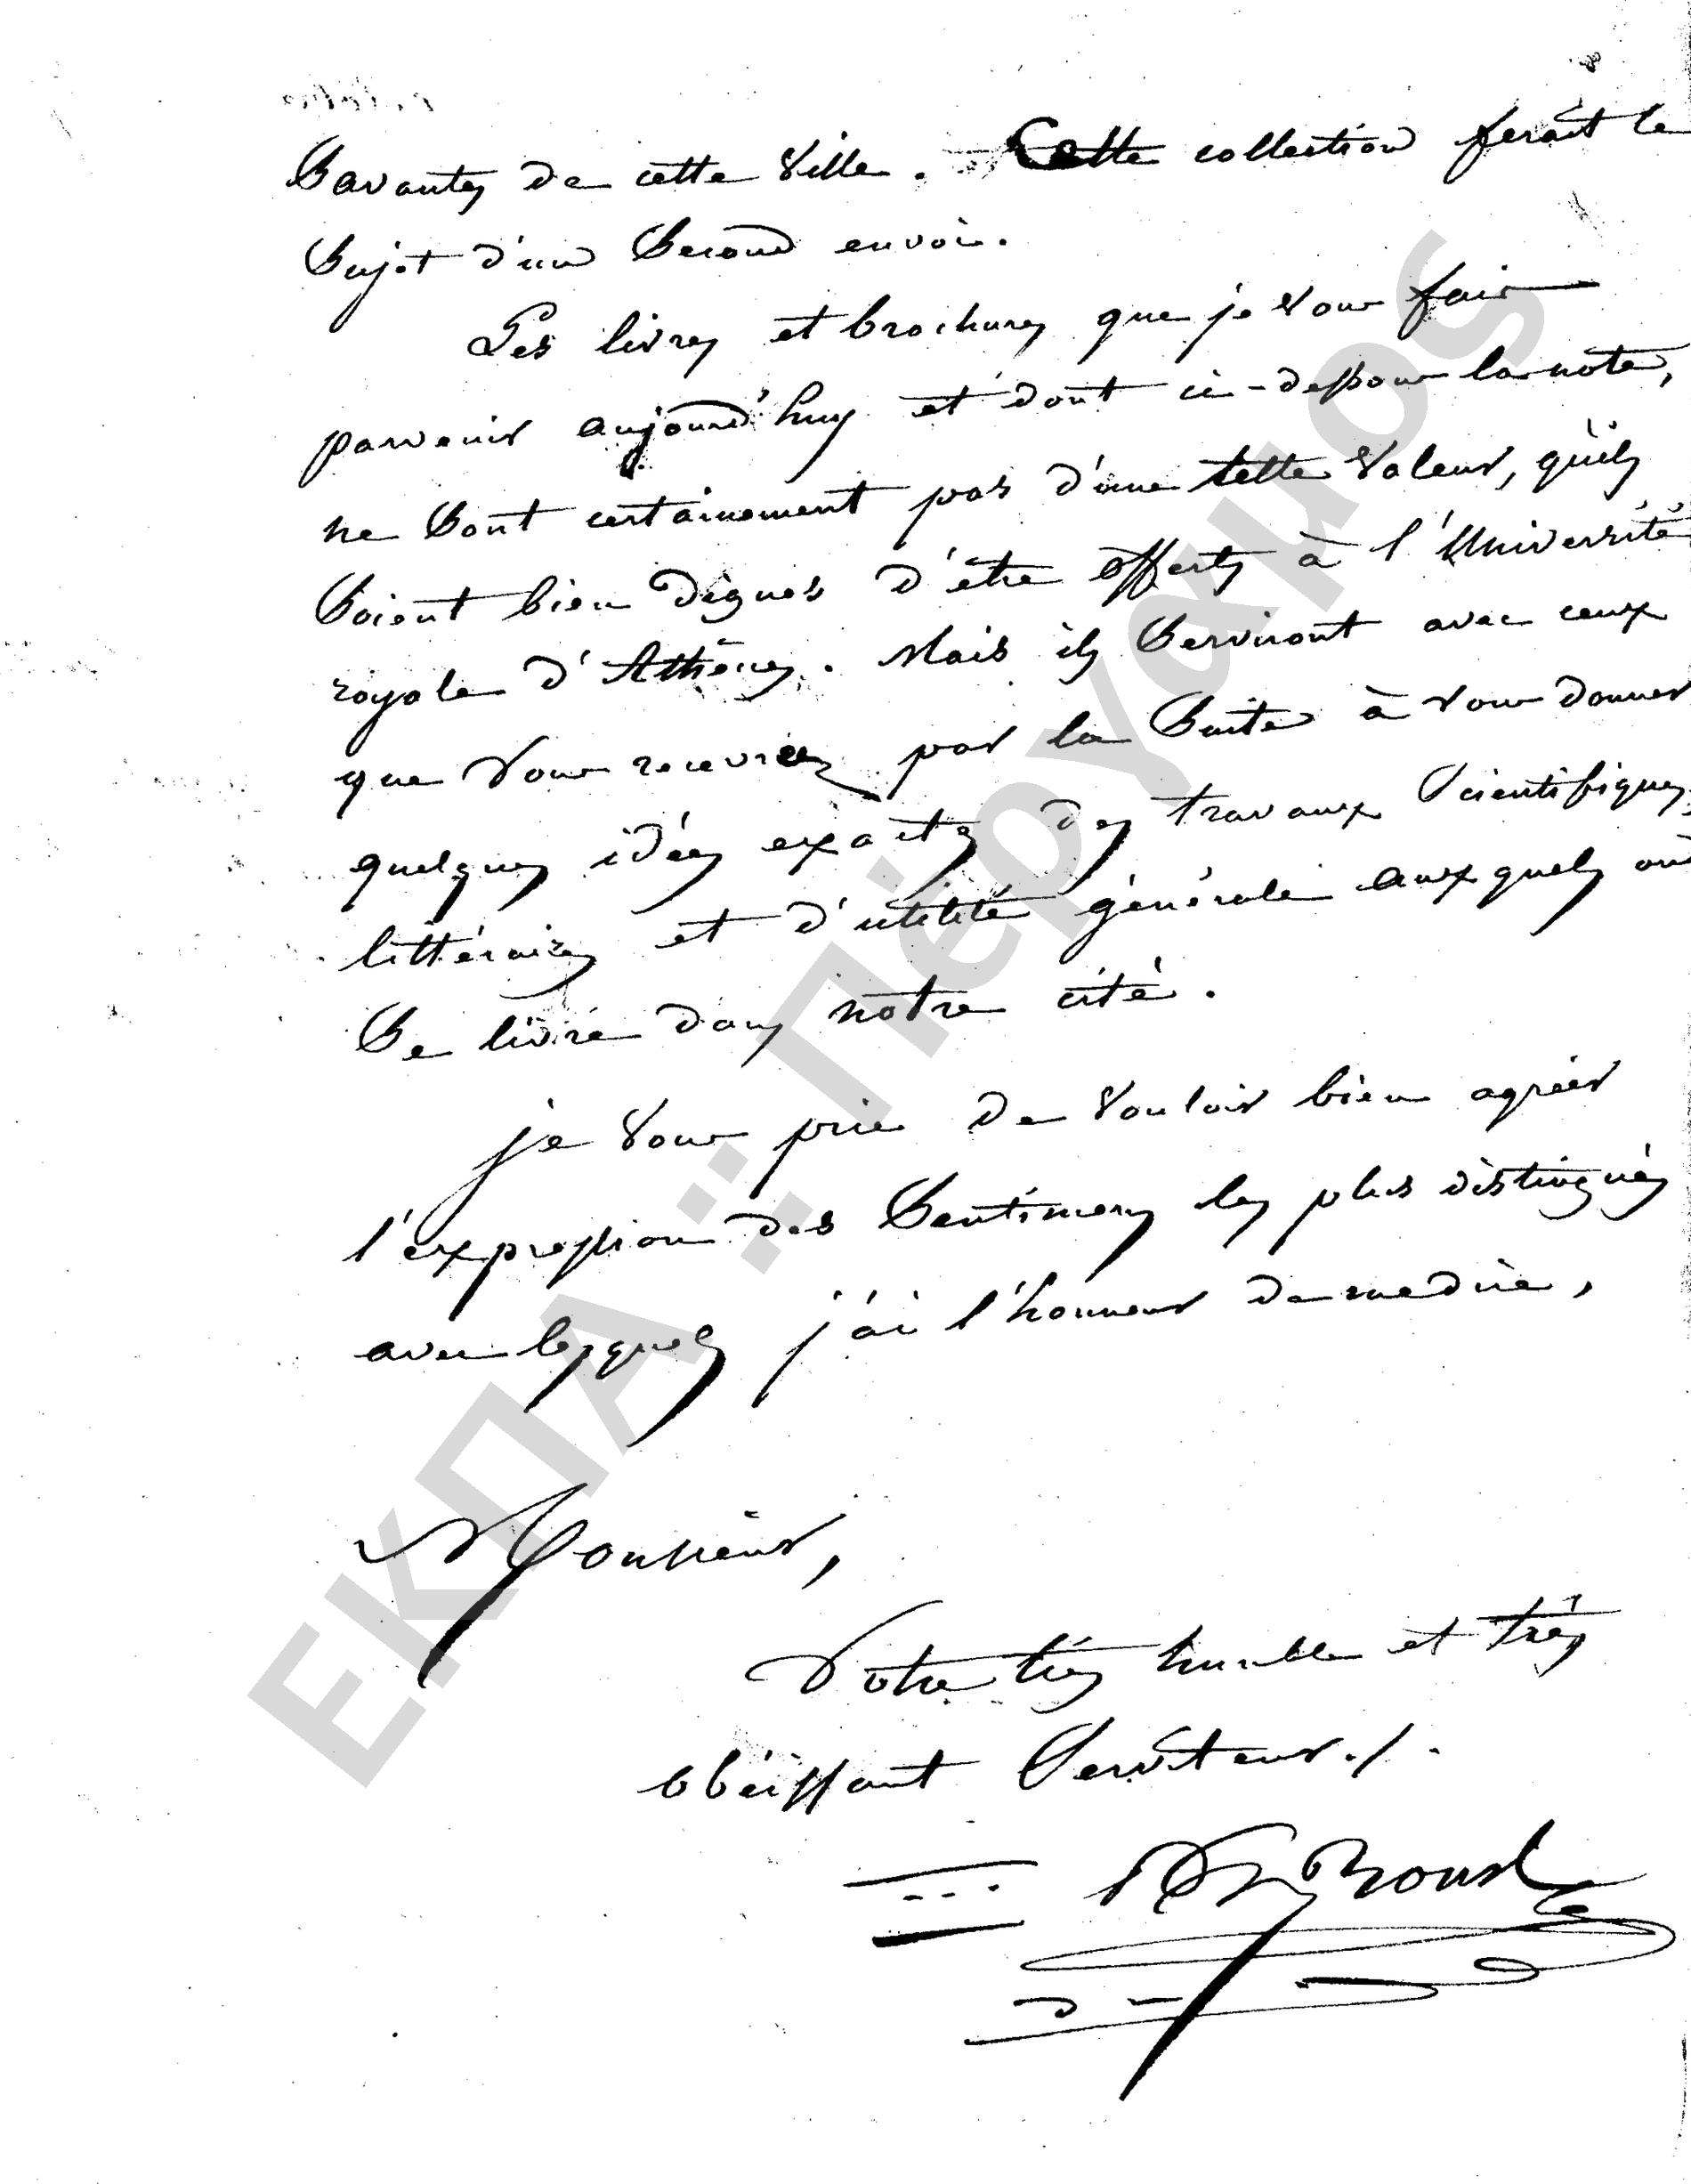 Savantes de cette Ville. Cette collection ferait le
Sujet d'un Second envoi.
Les livres et brochures que je Vous fais
parvenir aujourd'huy et dont ci-dessous la note,
ne Sont certainement pas d'une telle Valeur, qu'ils
Soient bien dignes d'être offerts à l'Université
royale d'Athènes. Mais ils Serviront avec ceux
que Vous recevrez par la Suite à vous donner
quelques idées exactes des travaux Scientifiques,
littéraires et d'utilité générale auxquels on
Se livre dans notre cité.
je Vous prie de Vouloir bien agréer
l'expression des Sentimens les plus distingués
avec lesquels j'ai l'honneur de me dire,
Monsieur,
Votre très humble et très
obéissant Serviteur./.
ΕΚΠΑ :: Πέργαμος